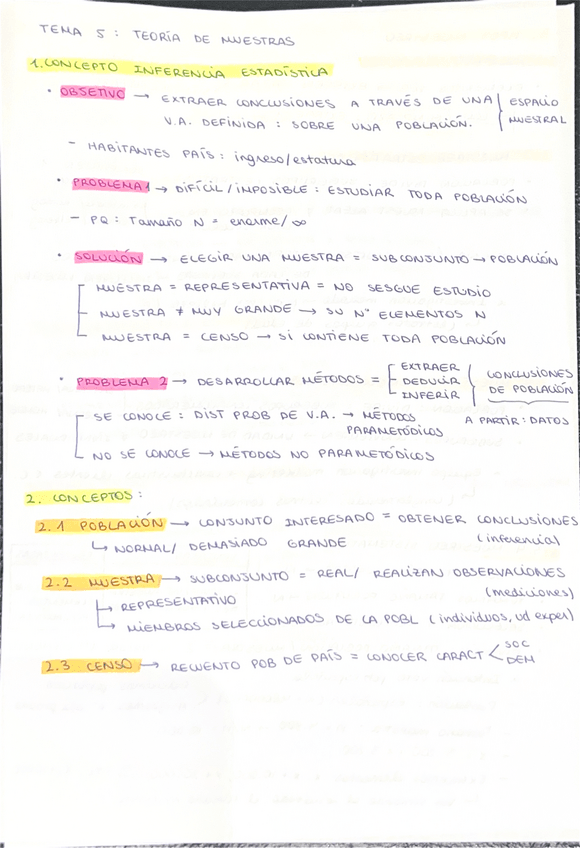 TEMA 5 : TEORÍA DE MUESTRAS
1. CONCEPTO INFERENCIA ESTADÍSTICA
• OBSETIVO → EXTRAER CONCLUSIONES A TRAVÉS DE UNA { ESPACIO
V.A. DEFINIDA : SOBRE UNA POBLACIÓN. MUESTRAL
- HABITANTES PAÍS : ingreso/estatura
• PROBLEMA 1 → DIFÍCIL/IMPOSIBLE : ESTUDIAR TODA POBLACIÓN
- PQ : Tamaño N = enorme/∞
• SOLUCIÓN → ELEGIR UNA MUESTRA = SUBCONJUNTO → POBLACIÓN
MUESTRA = REPRESENTATIVA = NO SESGUE ESTUDIO
MUESTRA ≠ MUY GRANDE → SU Nº ELEMENTOS N
MUESTRA = CENSO → SI CONTIENE TODA POBLACIÓN
• PROBLEMA 2 → DESARROLLAR MÉTODOS = [ EXTRAER { CONCLUSIONES
DEDUCIR DE POBLACIÓN
INFERIR
SE CONOCE : DIST PROB DE V.A. → MÉTODOS A PARTIR : DATOS
PARAMETÓDICOS
NO SE CONOCE → MÉTODOS NO PARAMETÓDICOS
2. CONCEPTOS :
2.1 POBLACIÓN → CONJUNTO INTERESADO = OBTENER CONCLUSIONES
↳ NORMAL/ DEMASIADO GRANDE (inferencial)
2.2 MUESTRA → SUBCONJUNTO = REAL/ REALIZAN OBSERVACIONES
(mediciones)
↳ REPRESENTATIVO
↳ MIEMBROS SELECCIONADOS DE LA POBL (individuos, ud exper)
2.3 CENSO → RECUENTO POB DE PAÍS = CONOCER CARACT < SOC
DEM